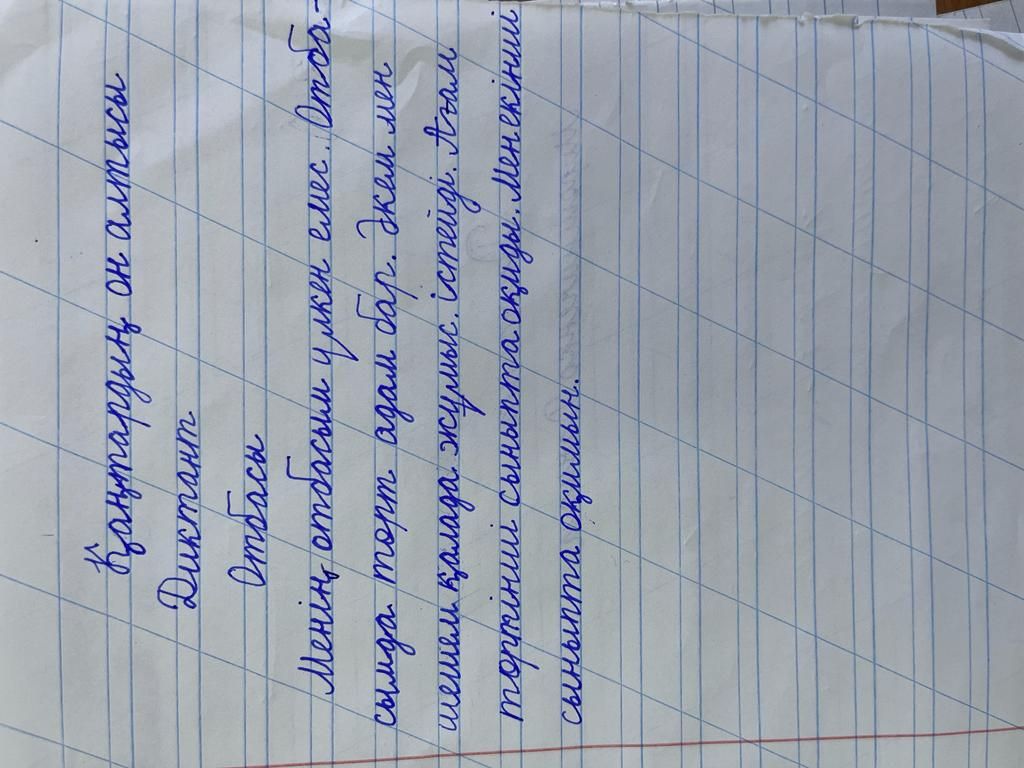 Қаңтардың он алтысы
Диктант
Отбасы
Менің отбасым үлкен емес. Отба-
сымда торт адам бар. Әкем мен
шешем қалада жұмыс. істейді. Ағам
торкінші сыныпта оқиды. Мен екінші
сыныпта оқимын.